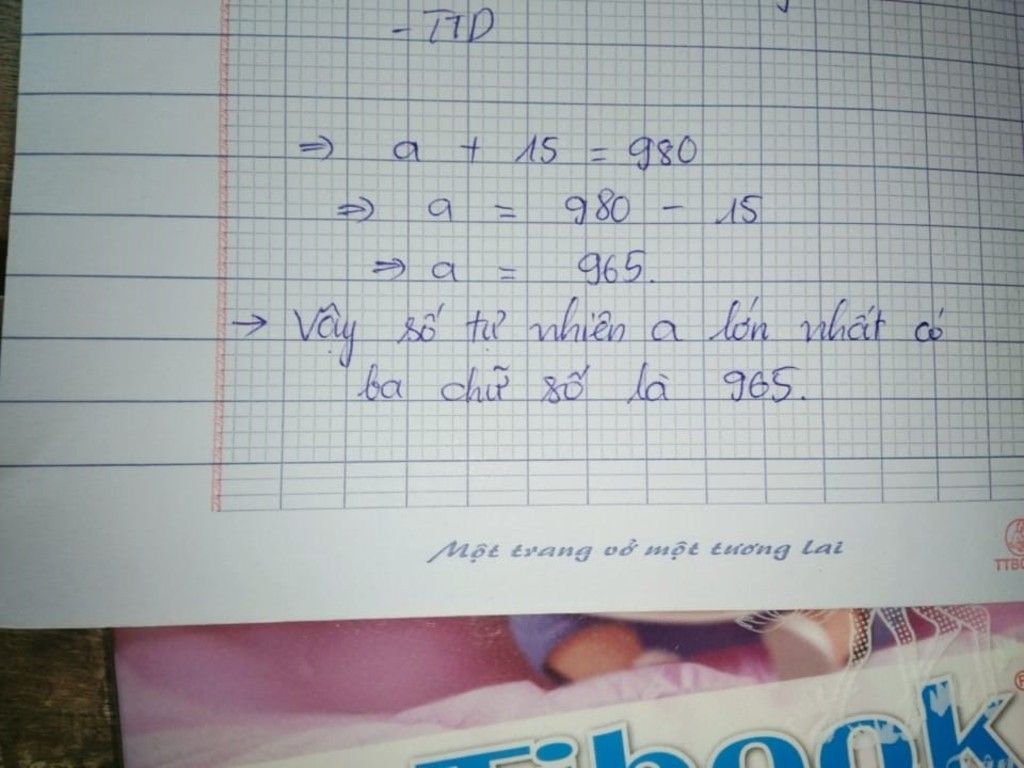 - TTD
⇒ a + 15 = 980
⇒ a = 980 - 15
⇒ a = 965.
→ Vậy số tự nhiên a lớn nhất có
ba chữ số là 965.
Một trang vở một tương lai
Tibook